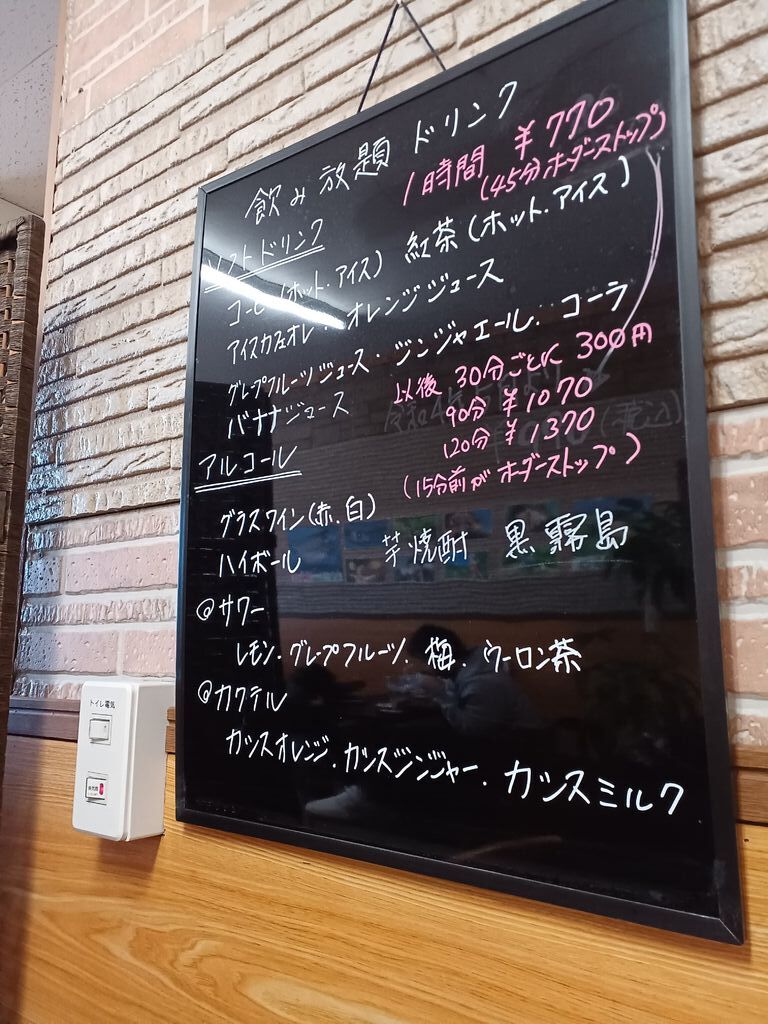 飲み放題 ドリンク
1時間 ¥770
(45分ホーダーストップ)
ソフトドリンク
コーヒ(ホット・アイス) 紅茶(ホット・アイス)
アイスカフェオレ・オレンジジュース
グレープフルーツジュース・ジンジャエール、コーラ
バナナジュース
以後 30分ごとに 300円
90分 ¥1070
120分 ¥1370
(15分前がホーダーストップ)
アルコール
グラスワイン(赤、白)
ハイボール 芋焼酎 黒霧島
@サワー
レモン・グレープフルーツ、梅、ウーロン茶
@カクテル
カシスオレンジ、カシスジンジャー、カシスミルク
トイレ電気